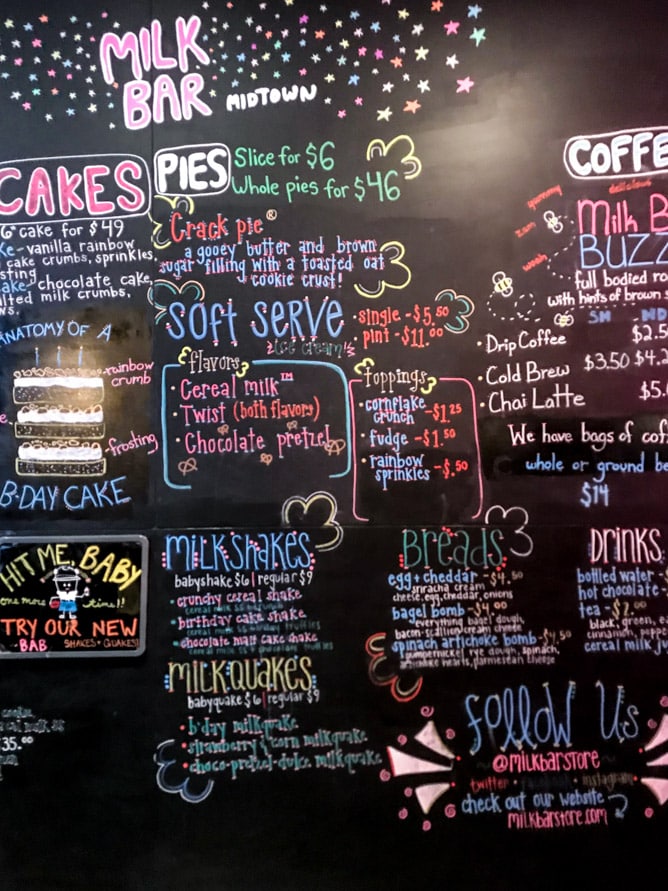 MILK
BAR MIDTOWN
CAKES
6" cake for $49
vanilla, rainbow
cake crumbs, sprinkles,
sting
chocolate cake,
lted milk crumbs,
ws.
ANATOMY OF A
rainbow
crumb
frosting
B-DAY CAKE
PIES
Slice for $6
Whole pies for $46
Crack pie®
a gooey butter and brown
sugar filling with a toasted oat
cookie crust!
Soft Serve
ice cream!
single - $5.50
pint - $11.00
flavors
• Cereal milk™
• Twist (both flavors)
• Chocolate pretzel
toppings
• cornflake
crunch - $1.25
• fudge - $1.50
• rainbow
sprinkles - $.50
COFFE
delicious
yummy
Milk B
BUZZ
full bodied ro
with hints of brown
SM MD
• Drip Coffee $2.5
• Cold Brew $3.50 $4.
• Chai Latte $5.
We have bags of cof
whole or ground be
$14
HIT ME, BABY
one more time!!
TRY OUR NEW
BAB SHAKES + QUAKES!
35.00
MILKSHAKES
babyshake $6 | regular $9
• crunchy cereal shake
• birthday cake shake
• chocolate malt cake shake
MILKQUAKES
babyquake $6 | regular $9
• b'day milkquake
• strawberry & corn milkquake
• choco-pretzel-dulce milkquake
BREADS
egg + cheddar - $4.50
sriracha cream
cheese, egg, cheddar, onions
bagel bomb - $4.00
everything bagel dough,
bacon-scallion cream cheese
spinach artichoke bomb - $4.50
pumpernickel rye dough, spinach,
artichoke hearts, parmesean cheese
DRINKS
bottled water -
hot chocolate -
tea - $2.00
black, green, ea
cinnamon, pepper
cereal milk ju
Follow Us
@milkbarstore
twitter • facebook • instagram
check out our website
milkbarstore.com